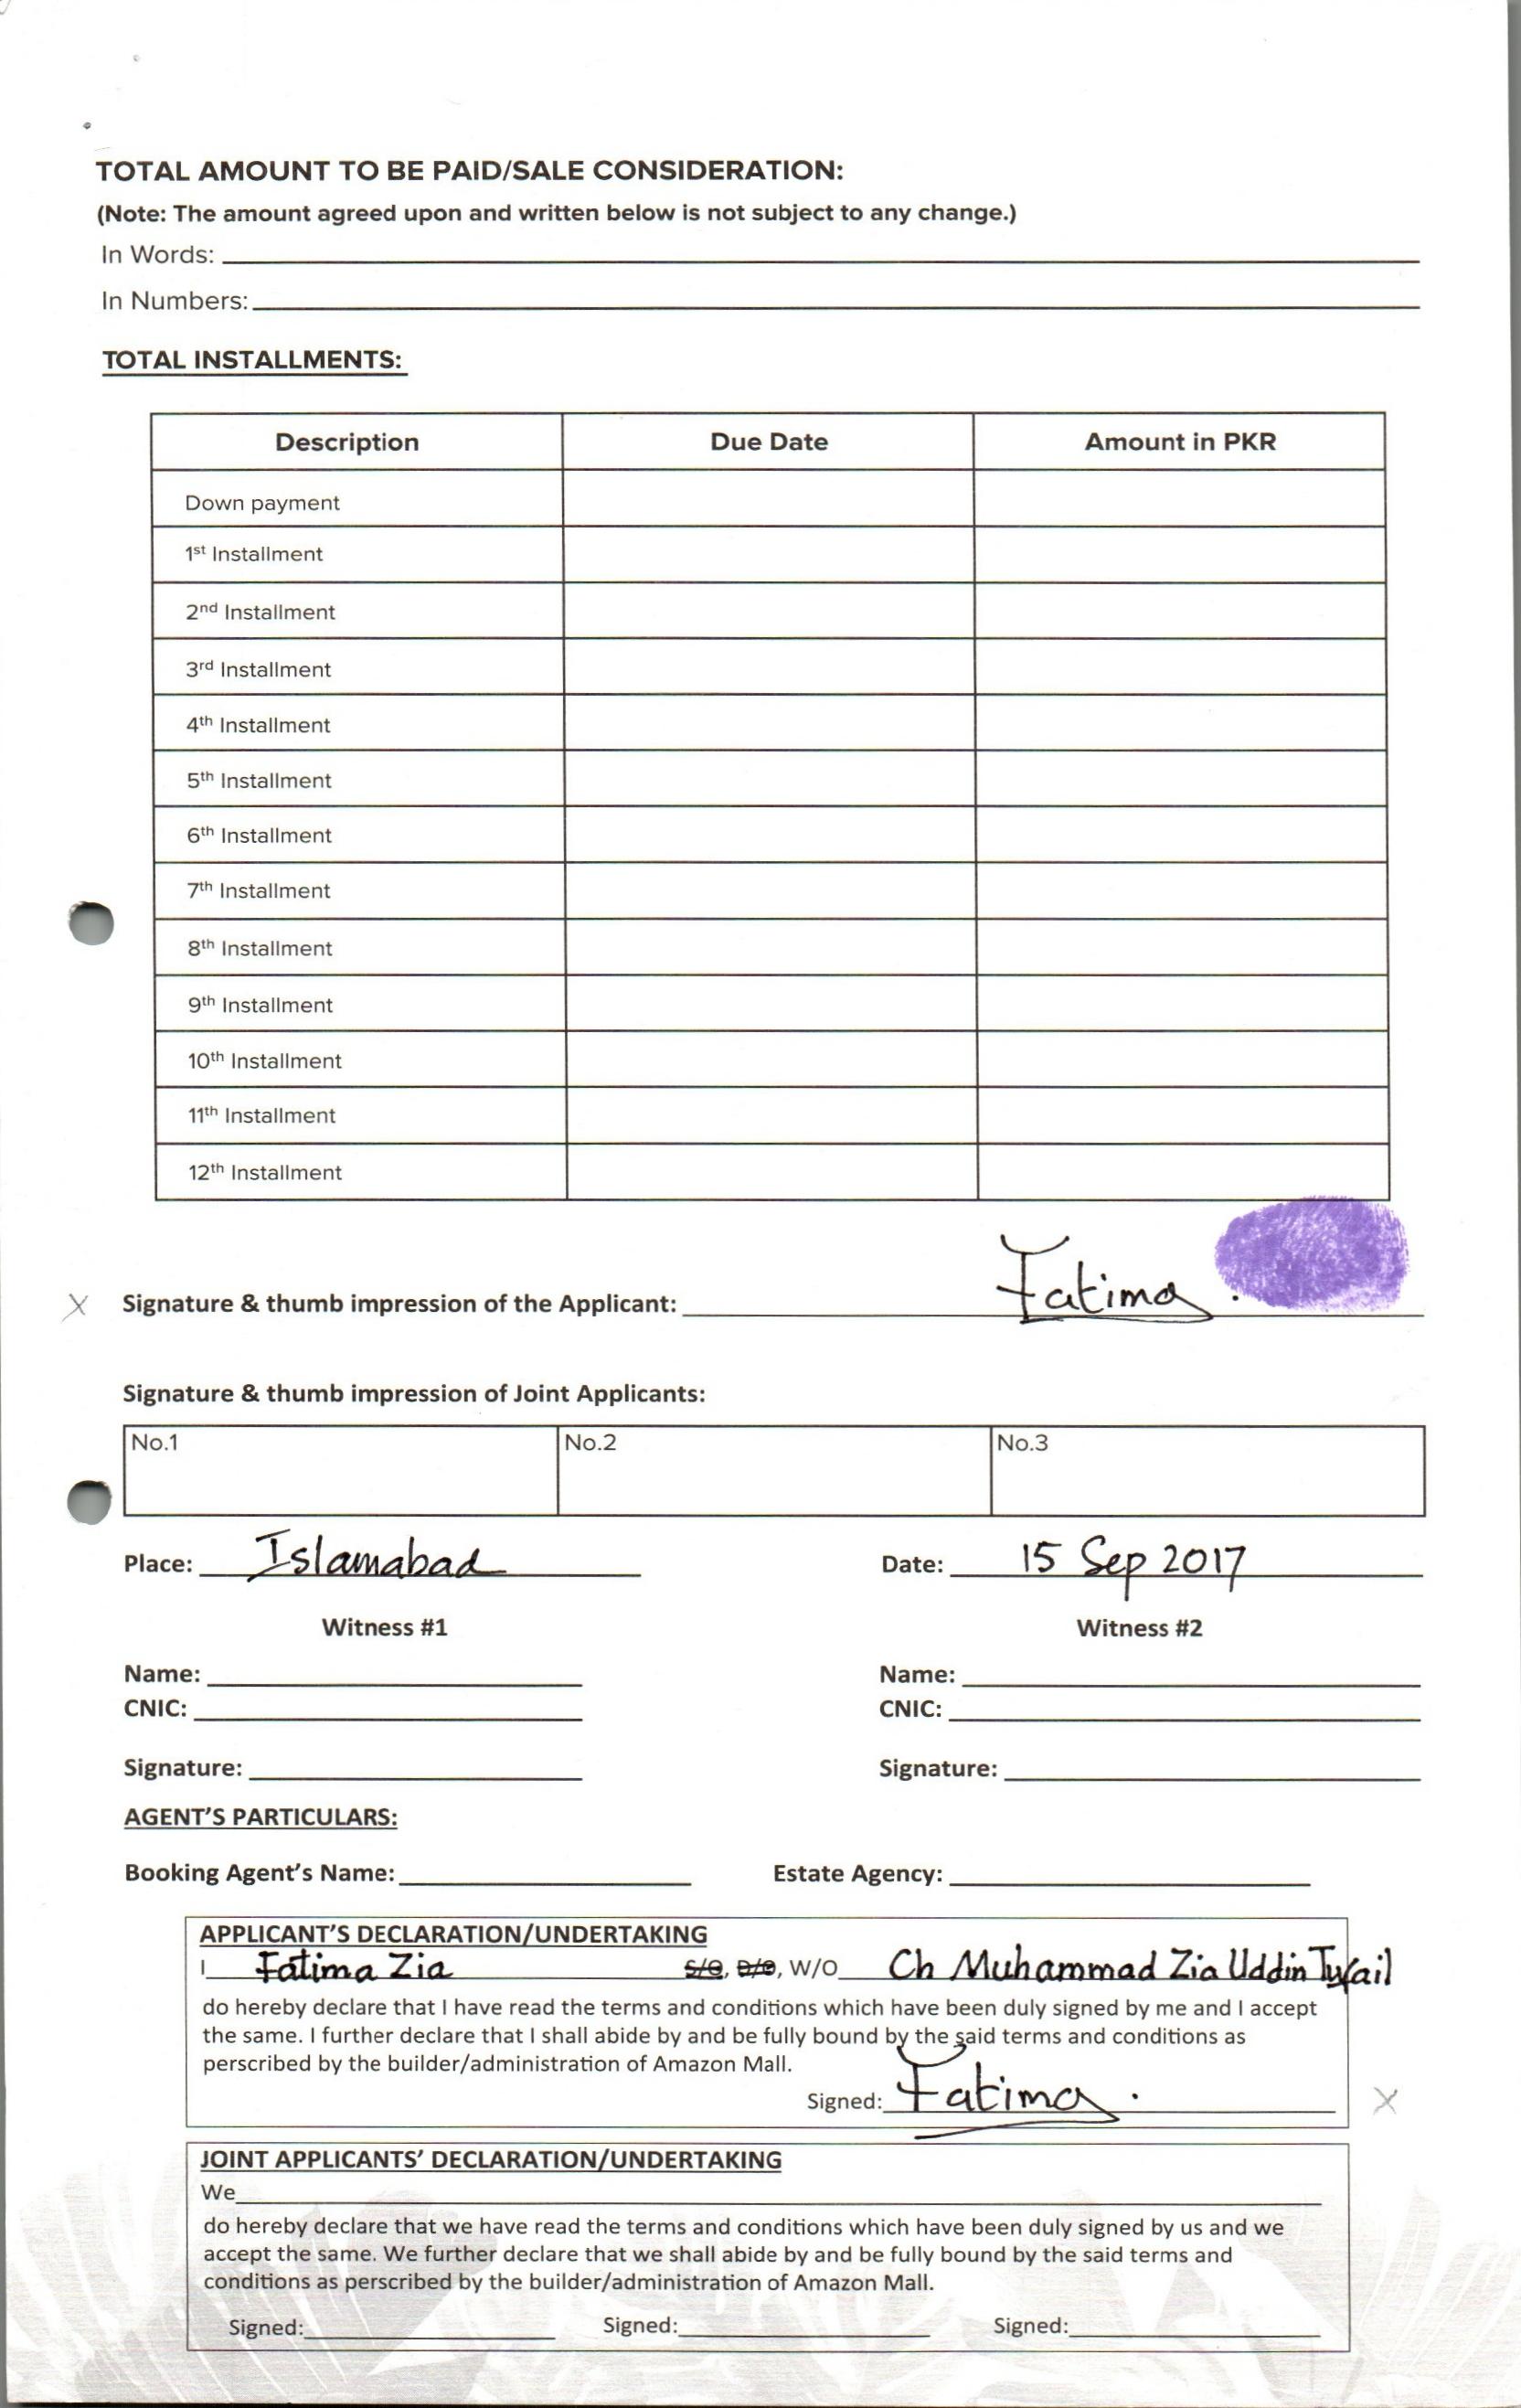 TOTAL AMOUNT TO BE PAID/SALE CONSIDERATION:
(Note: The amount agreed upon and written below is not subject to any change.)
In Words:
In Numbers:
TOTAL INSTALLMENTS:
Description Due Date Amount in PKR
Down payment
1st Installment
2nd Installment
3rd Installment
4th Installment
5th Installment
6th Installment
7th Installment
8th Installment
9th Installment
10th Installment
11th Installment
12th Installment
X Signature & thumb impression of the Applicant: Fatima.
Signature & thumb impression of Joint Applicants:
No.1 No.2 No.3
Place: Islamabad Date: 15 Sep 2017
Witness #1 Witness #2
Name: Name:
CNIC: CNIC:
Signature: Signature:
AGENT'S PARTICULARS:
Booking Agent's Name: Estate Agency:
APPLICANT'S DECLARATION/UNDERTAKING
I Fatima Zia S/O, D/O, W/O Ch Muhammad Zia Uddin Tufail
do hereby declare that I have read the terms and conditions which have been duly signed by me and I accept
the same. I further declare that I shall abide by and be fully bound by the said terms and conditions as
perscribed by the builder/administration of Amazon Mall.
Signed: Fatima. X
JOINT APPLICANTS' DECLARATION/UNDERTAKING
We
do hereby declare that we have read the terms and conditions which have been duly signed by us and we
accept the same. We further declare that we shall abide by and be fully bound by the said terms and
conditions as perscribed by the builder/administration of Amazon Mall.
Signed: Signed: Signed: